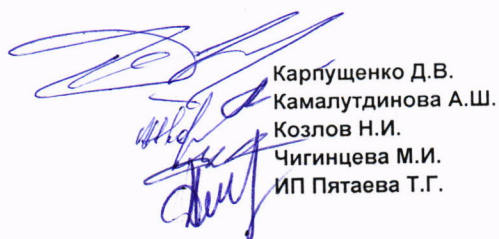 Карпущенко Д.В.
Камалутдинова А.Ш.
Козлов Н.И.
Чигинцева М.И.
ИП Пятаева Т.Г.